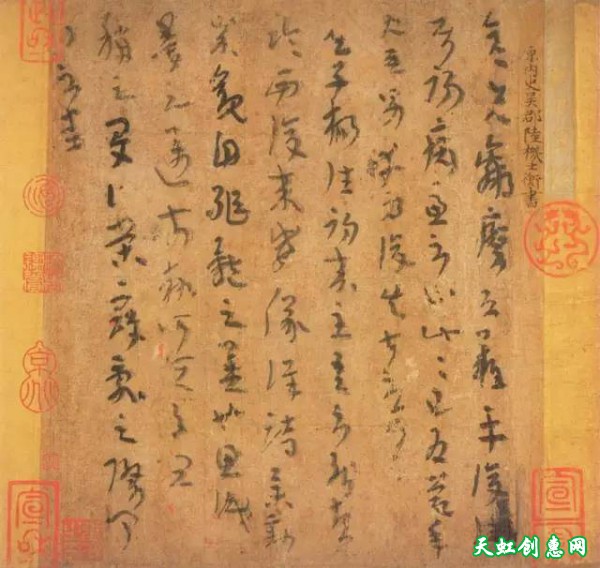 原内史吳郡陸機士衡書
彦先羸瘵恐難平復往屬
初病慮不止此此已為慶承
使唯男幸為復失前憂耳
吳子楊往初來主吾不能盡
臨西復來威儀詳跱舉動
成觀自軀體之美也思識
量之邁前執所恒有宜
稱之夏伯榮寇亂之際聞
問不悉
天虹创惠网